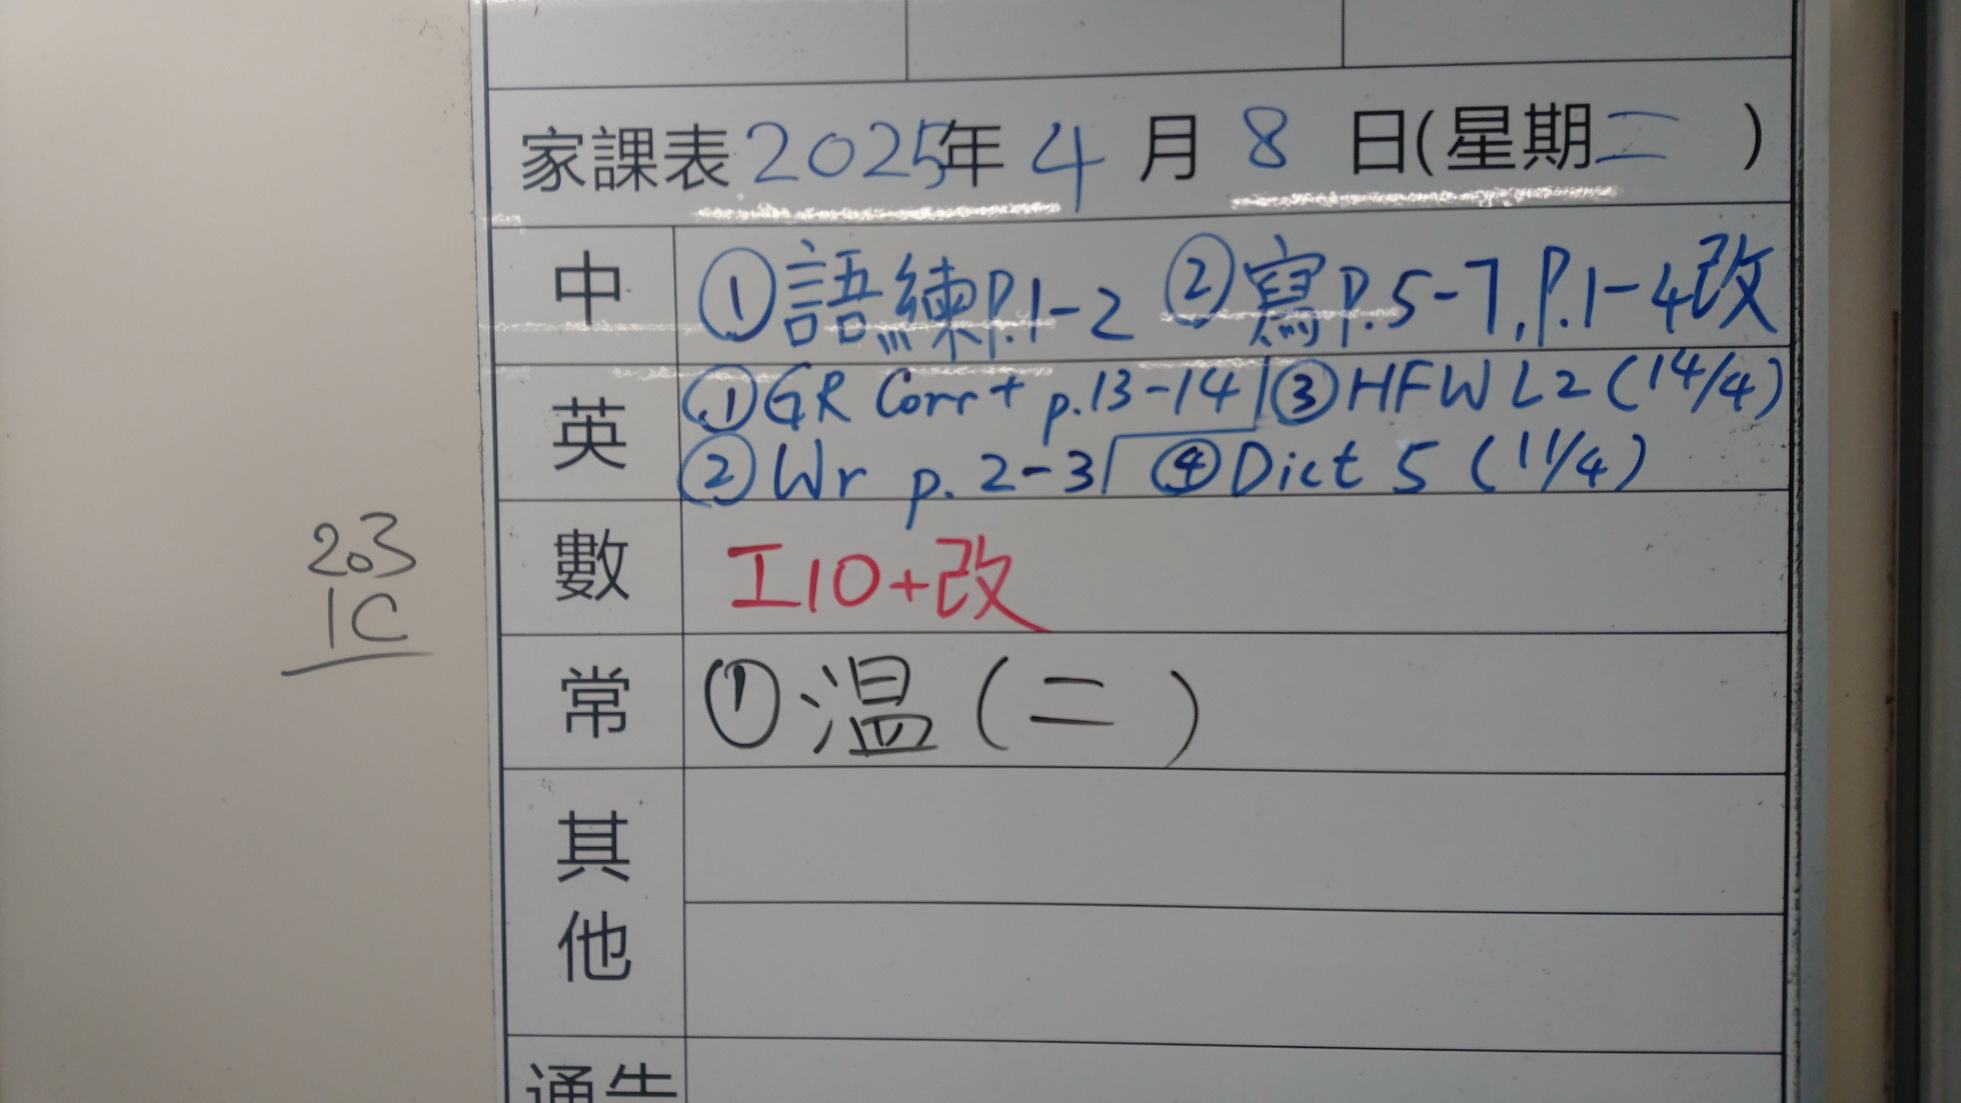 家課表2025年4月8日(星期二)
中 ①語練P.1-2 ②寫P.5-7,P.1-4改
英 ①GR Corr+ p.13-14 ③HFW L2 (14/4)
②Wr p.2-3 ④Dict 5 (11/4)
數 工10+改
常 ①温(二)
其他
通告
203
1C